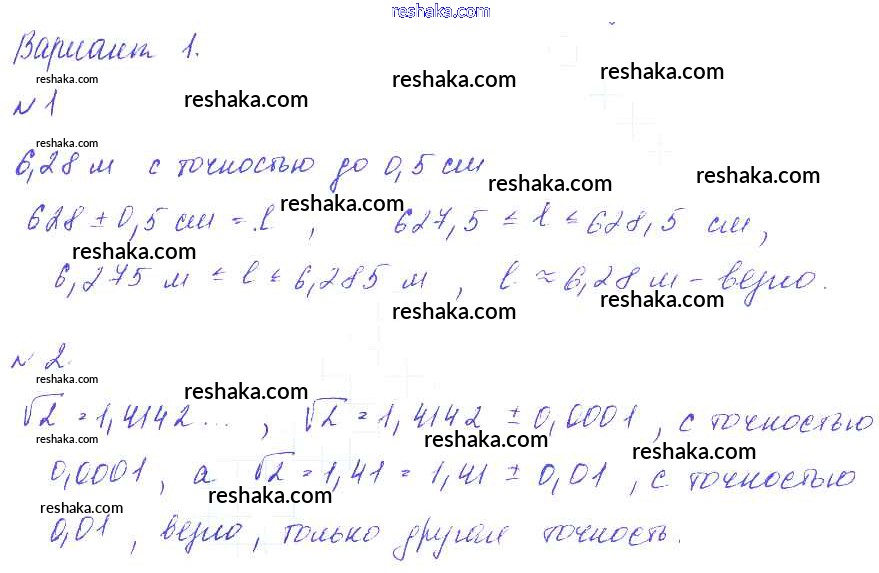 reshaka.com
Вариант 1.
reshaka.com reshaka.com reshaka.com reshaka.com
№ 1
reshaka.com
6,28 м с точностью до 0,5 см
reshaka.com reshaka.com
628 ± 0,5 см = l, 627,5 ≤ l ≤ 628,5 см,
reshaka.com reshaka.com reshaka.com
6,275 м ≤ l ≤ 6,285 м, l ≈ 6,28 м - верно.
reshaka.com reshaka.com
№ 2.
reshaka.com reshaka.com reshaka.com
√2 = 1,4142..., √2 = 1,4142 ± 0,0001, с точностью
reshaka.com reshaka.com reshaka.com
0,0001, а √2 = 1,41 = 1,41 ± 0,01, с точностью
reshaka.com reshaka.com reshaka.com
0,01, верно, только другая точность.